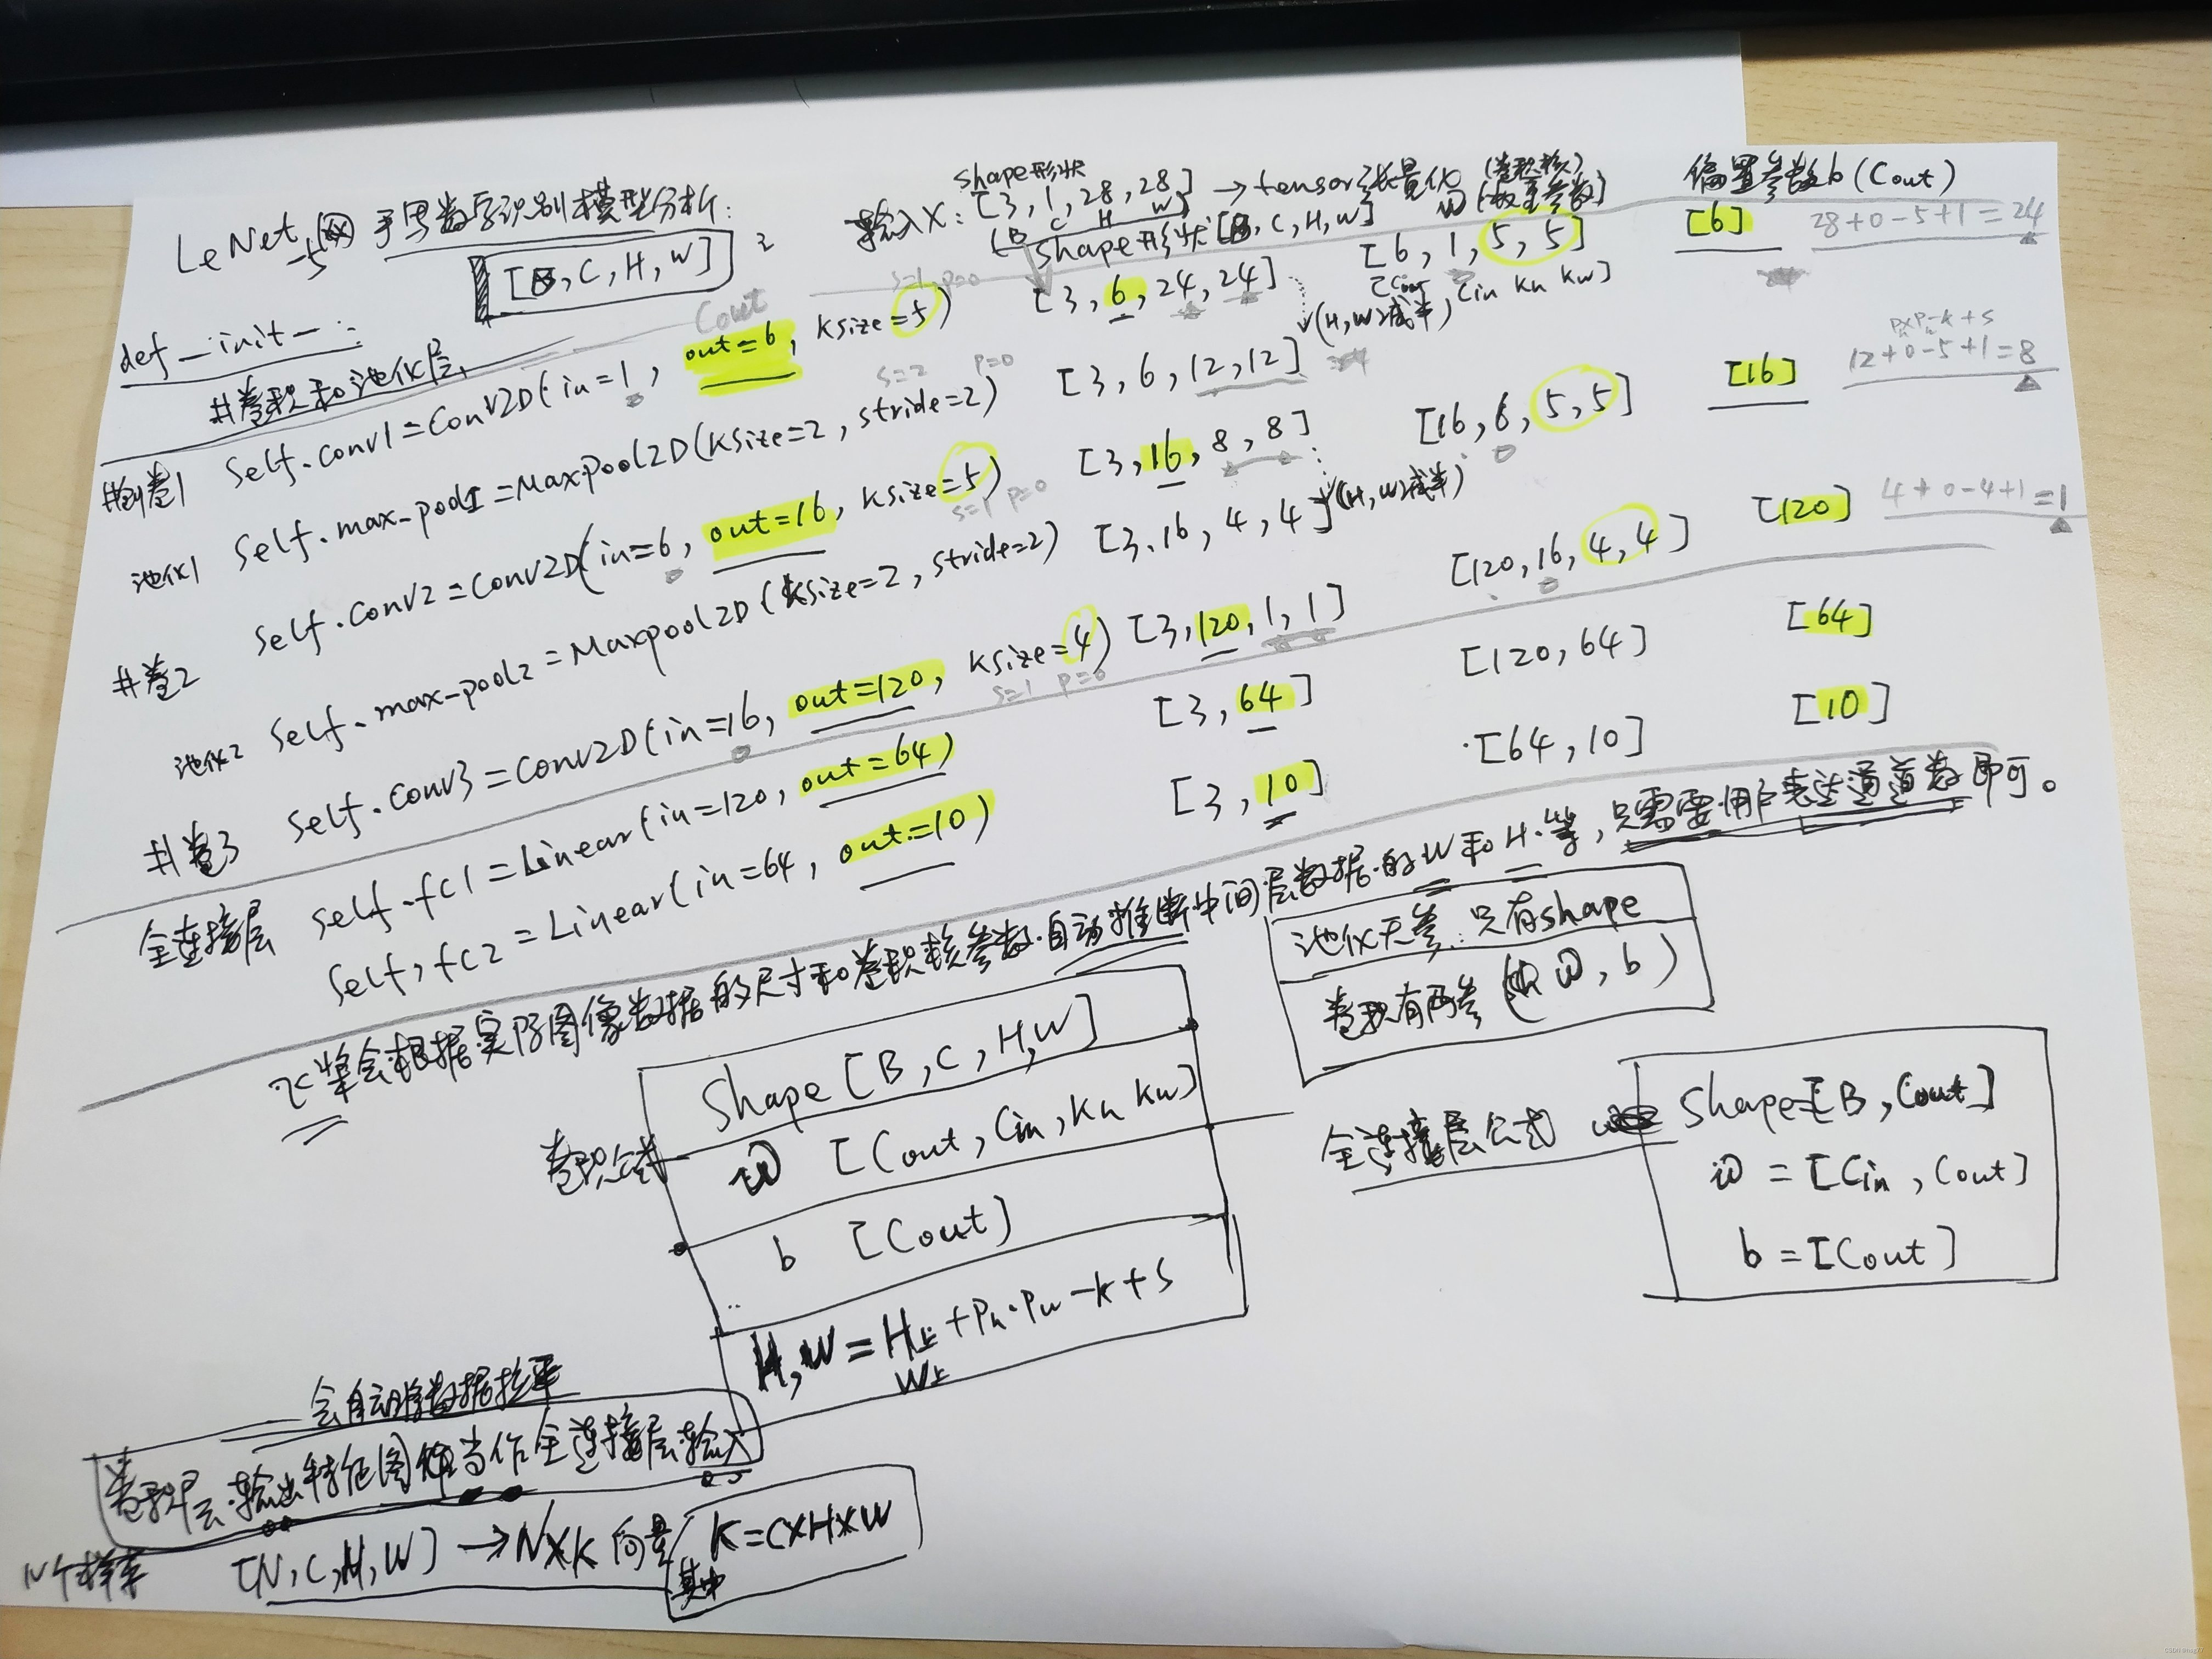 LeNet-5网 手写数字识别模型分析:
[B, C, H, W]
shape形状
输入X: [3, 1, 28, 28] → tensor张量化
B C H W
shape形状 [B, C, H, W]
(卷积核)
w (权重参数)
偏置参数b (Cout)
def _init_:
#卷积和池化层
Cout
s=1, p=0
#创卷1 self.conv1=Conv2D(in=1, out=6, ksize=5) [3, 6, 24, 24] [6, 1, 5, 5] [6] 28+0-5+1=24
[Cout Cin Kh Kw]
(H, W)减半
s=2 p=0
池化1 self.max-pool1=Maxpool2D(ksize=2, stride=2) [3, 6, 12, 12]
12+0-5+1=8
#卷2 self.conv2=Conv2D(in=6, out=16, ksize=5) [3, 16, 8, 8] [16, 6, 5, 5] [16]
s=1 p=0
(H, W)减半
池化2 self.max-pool2=Maxpool2D(ksize=2, stride=2) [3, 16, 4, 4]
#卷3 self.conv3=Conv2D(in=16, out=120, ksize=4) [3, 120, 1, 1] [120, 16, 4, 4] [120] 4+0-4+1=1
s=1 p=0
全连接层 self.fc1=Linear(in=120, out=64) [3, 64] [120, 64] [64]
self.fc2=Linear(in=64, out=10) [3, 10] [64, 10] [10]
飞桨会根据实际图像数据的尺寸和卷积核参数自动推断中间层数据的W和H等, 只需要用户表达通道数即可。
池化无参, 只有shape
卷积有两参 (w, b)
卷积公式
Shape [B, C, H, W]
w [Cout, Cin, Kh Kw]
b [Cout]
H, W = H上 + Ph·Pw - k + s
W上
全连接层公式
Shape=[B, Cout]
w = [Cin, Cout]
b = [Cout]
会自动将数据拉平
卷积层输出特征图 当作全连接层输入
N个样本 [N, C, H, W] → N×K 向量
其中 K=C×H×W